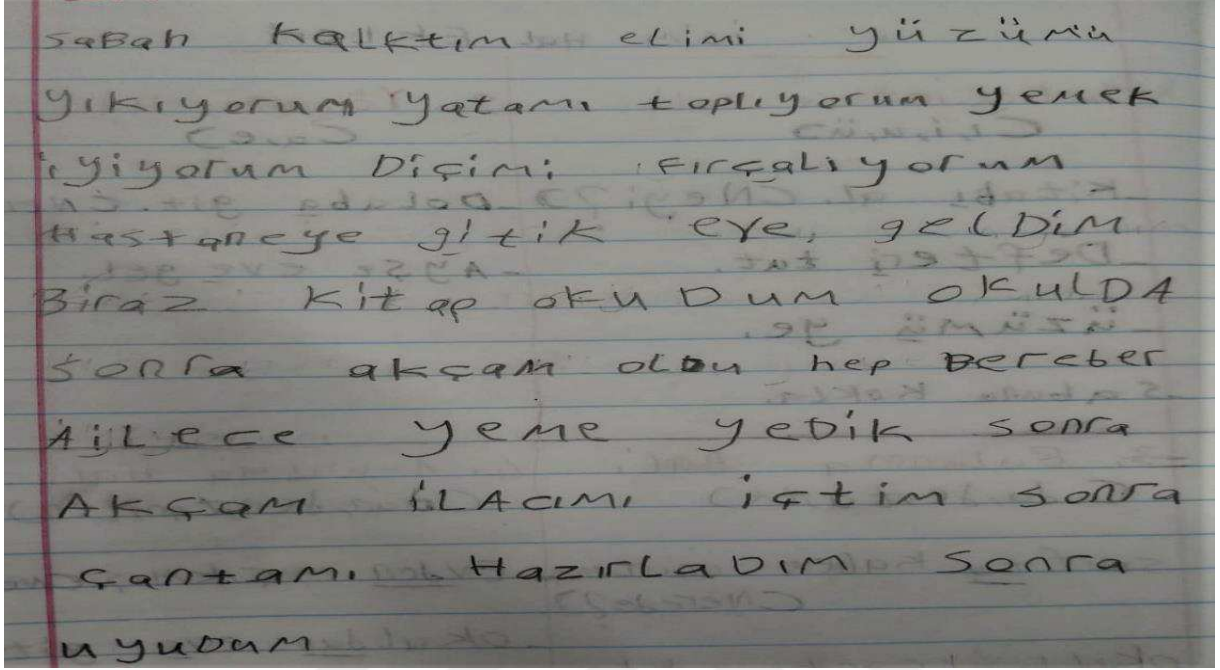 saBah kalktım elimi yüzümü
yıkıyorum yatamı toplıyorum yemek
iyiyorum Diçimi fırçalıyorum
Hastaneye gitik eve geldim
Biraz kitap okuDum okulDA
sonra akçam olDu hep Bereber
Ailece yeme yeDik sonra
Akçam iLAcımı içtim sonra
çantamı HazırlaDım sonra
uyuDum